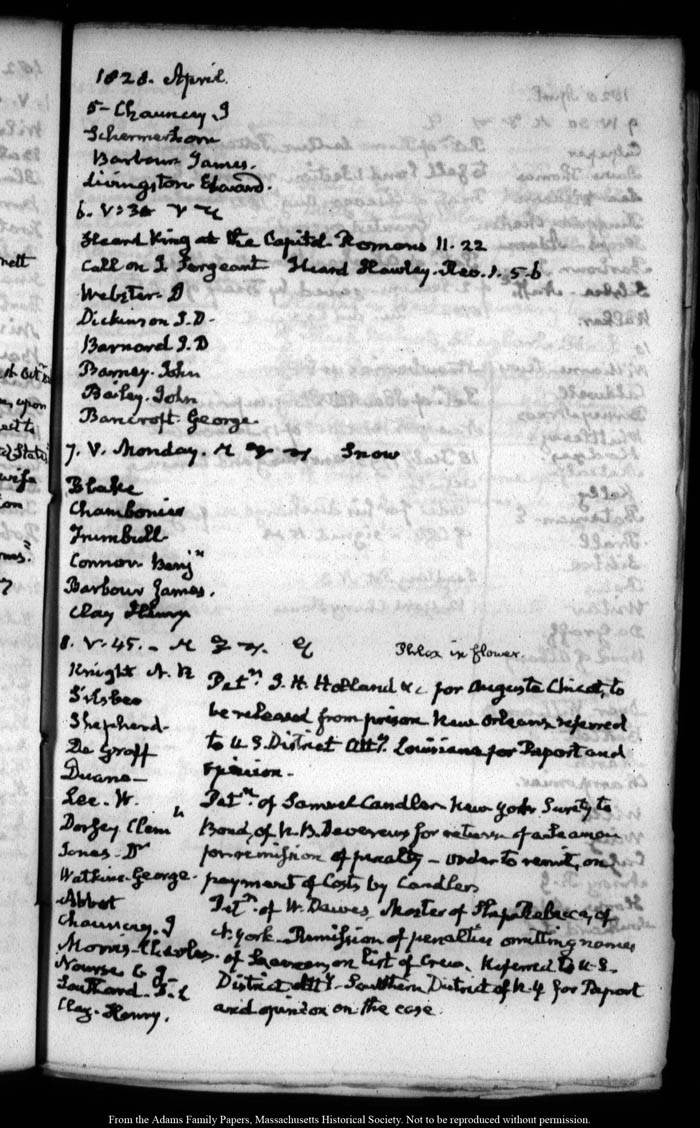 1828. April.
5- Chauncey. I
Schermerhorn
Barbour James.
Livingston Edward.
6. V:30
Heard King at the Capitol. Romans 11. 22
Call on J. Sergeant Heard Hawley. Rev. 1. 5-6
Webster. D
Dickinson J. D-
Barnard. D
Barney. John
Bailey. John
Bancroft. George.
7. V. Monday. Snow
Blake
Chambonier
Trumbull
Connor. Benjn
Barbour James.
Clay Henry
8. V. 45. - Phlox in flower.
Knight N. R
Silsbee
Shepherd.
De Graff
Duane-
Lee. W.
Dorsey Clem
Jones. Dr
Watkins. George.
Abbot
Chauncey. I
Morris. Charles.
Nourse
Southard. S. L
Clay. Henry.
Petn. J. H. Holland &c for Auguste to
be released from prison New Orleans referred
to U S. District Atty. Louisiana for Report and
opinion.
Petn. of Samuel Candler New York. Surety to
Bond, of N. B. Devereux for return of a seaman
for remission of penalty - order to remit, on
payment of Costs by Candler
Petn. of W. Dawes, Master of Ship Rebecca, of
N. York. Remission of penalties omitting names
of on list of Crew. Referred to U. S.
District Atty. Southern District of N. Y for Report
and opinion on the case.
nett
upon
ect to
State
wife
From the Adams Family Papers, Massachusetts Historical Society. Not to be reproduced without permission.